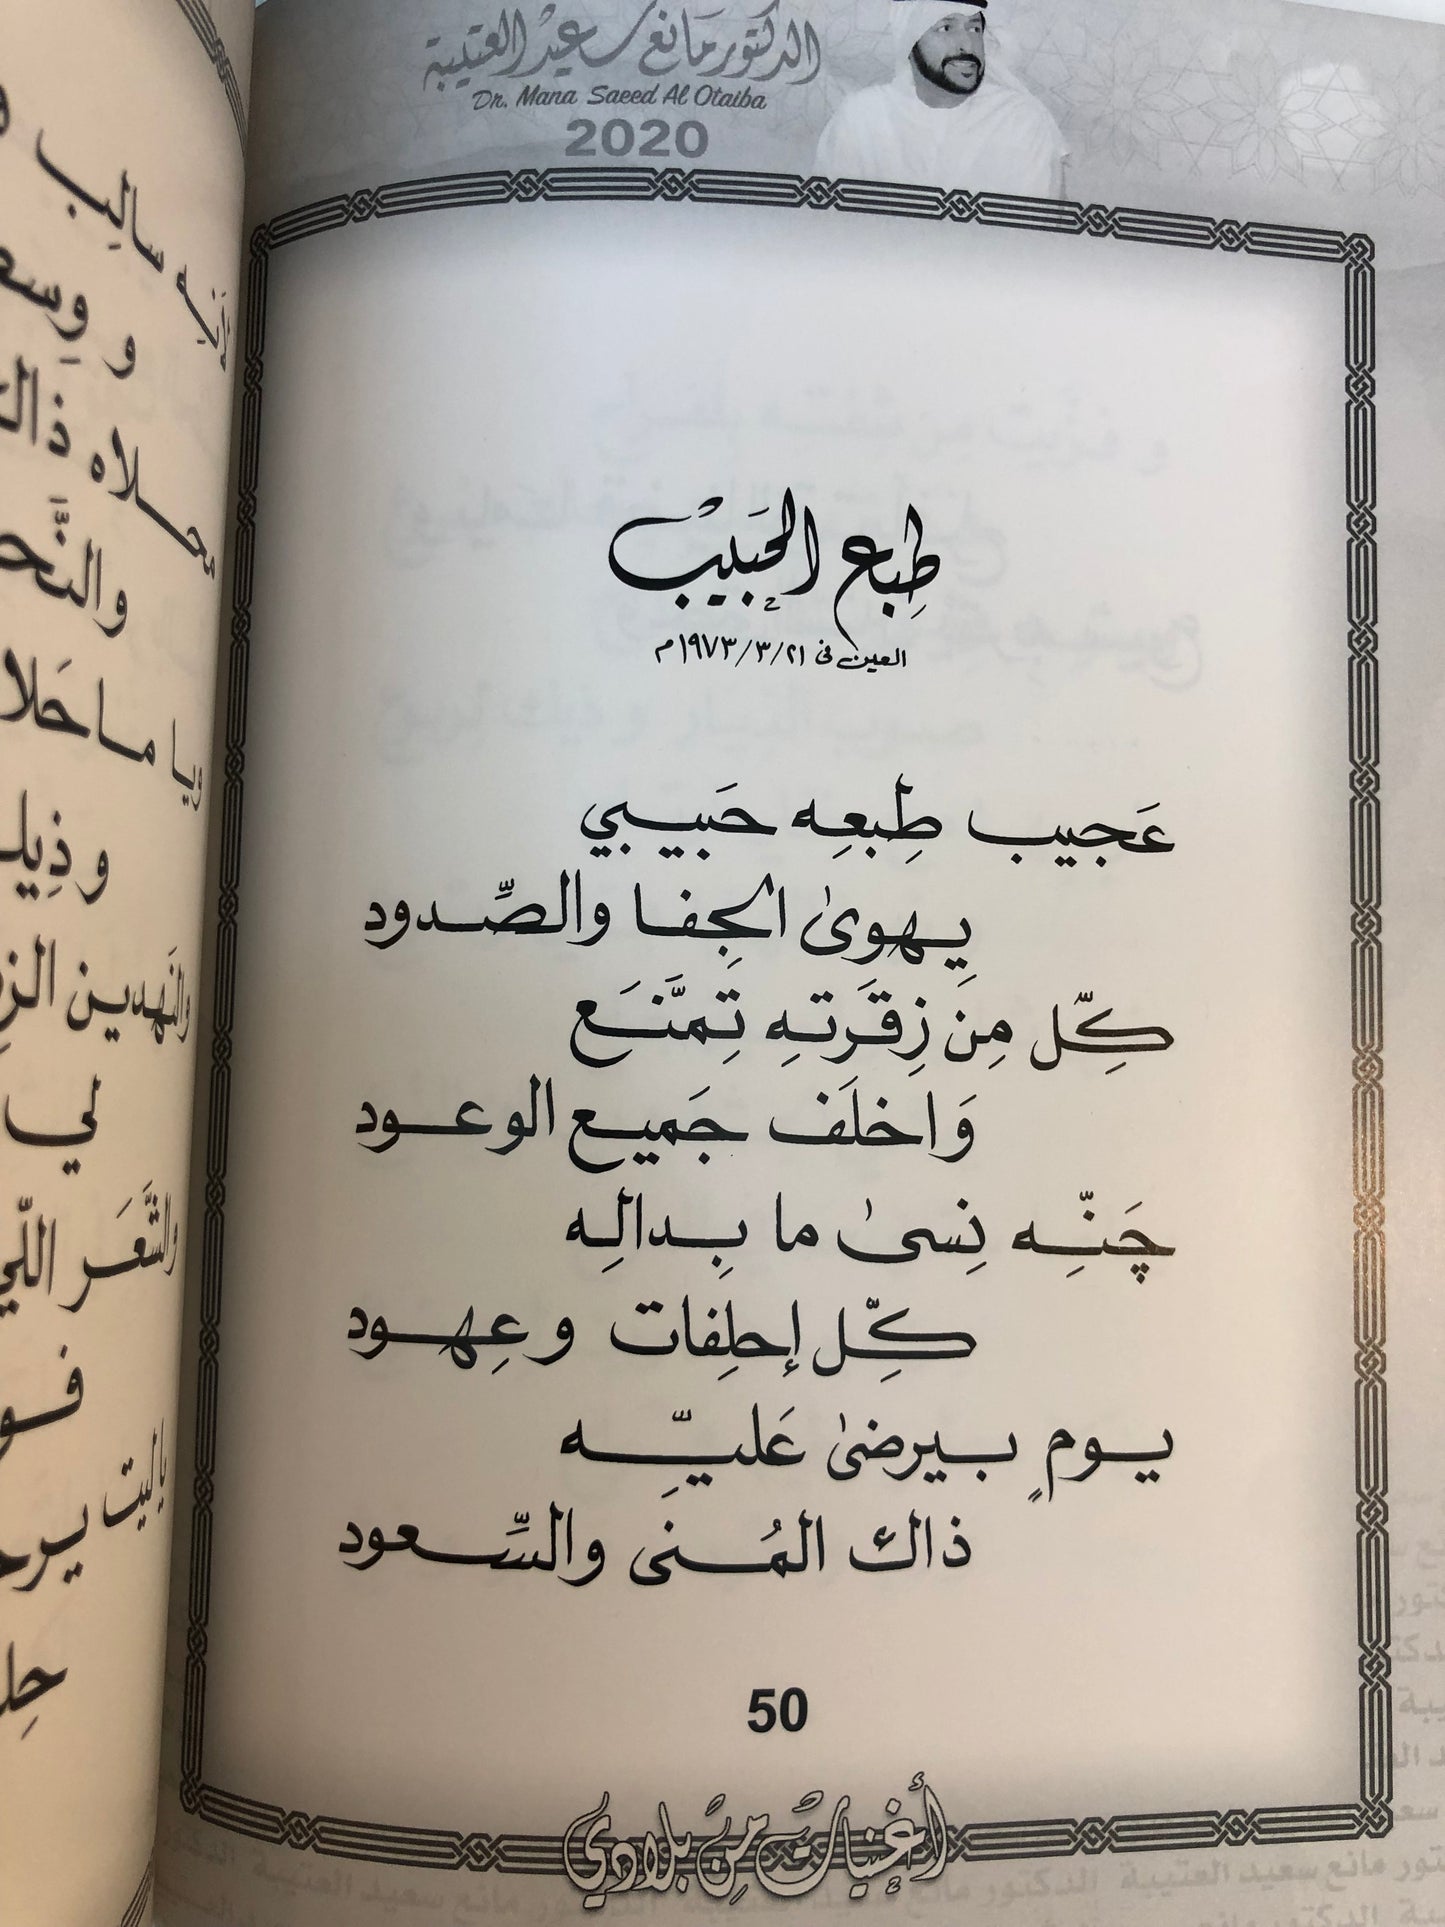 الدكتور مانع سعيد العتيبة
Dr. Mana Saeed Al Otaiba
2020
طِبع الحَبِيب
العين في ٢١/٣/١٩٧٣م
عَجيب طِبعِه حَبيبي
يِهوىٰ الجِفا والصِّدود
كِّل مِن زِقَرتهِ تِمنَّع
وَاخلَف جَميع الوعود
چَنِّه نِسىٰ ما بِدالِه
كِّل إحلِفات وعِهود
يومٍ بيرضىٰ عَليِّه
ذاك المُنىٰ والسِّعود
50
أغنيات من بلادي
سالِب
و وِسع
محلاه ذاك
والنَّح
ويا ماحَلا
و ذِيل
والنَهدين
لي
والشَّعَر اللّي
فو
ياليت يرح